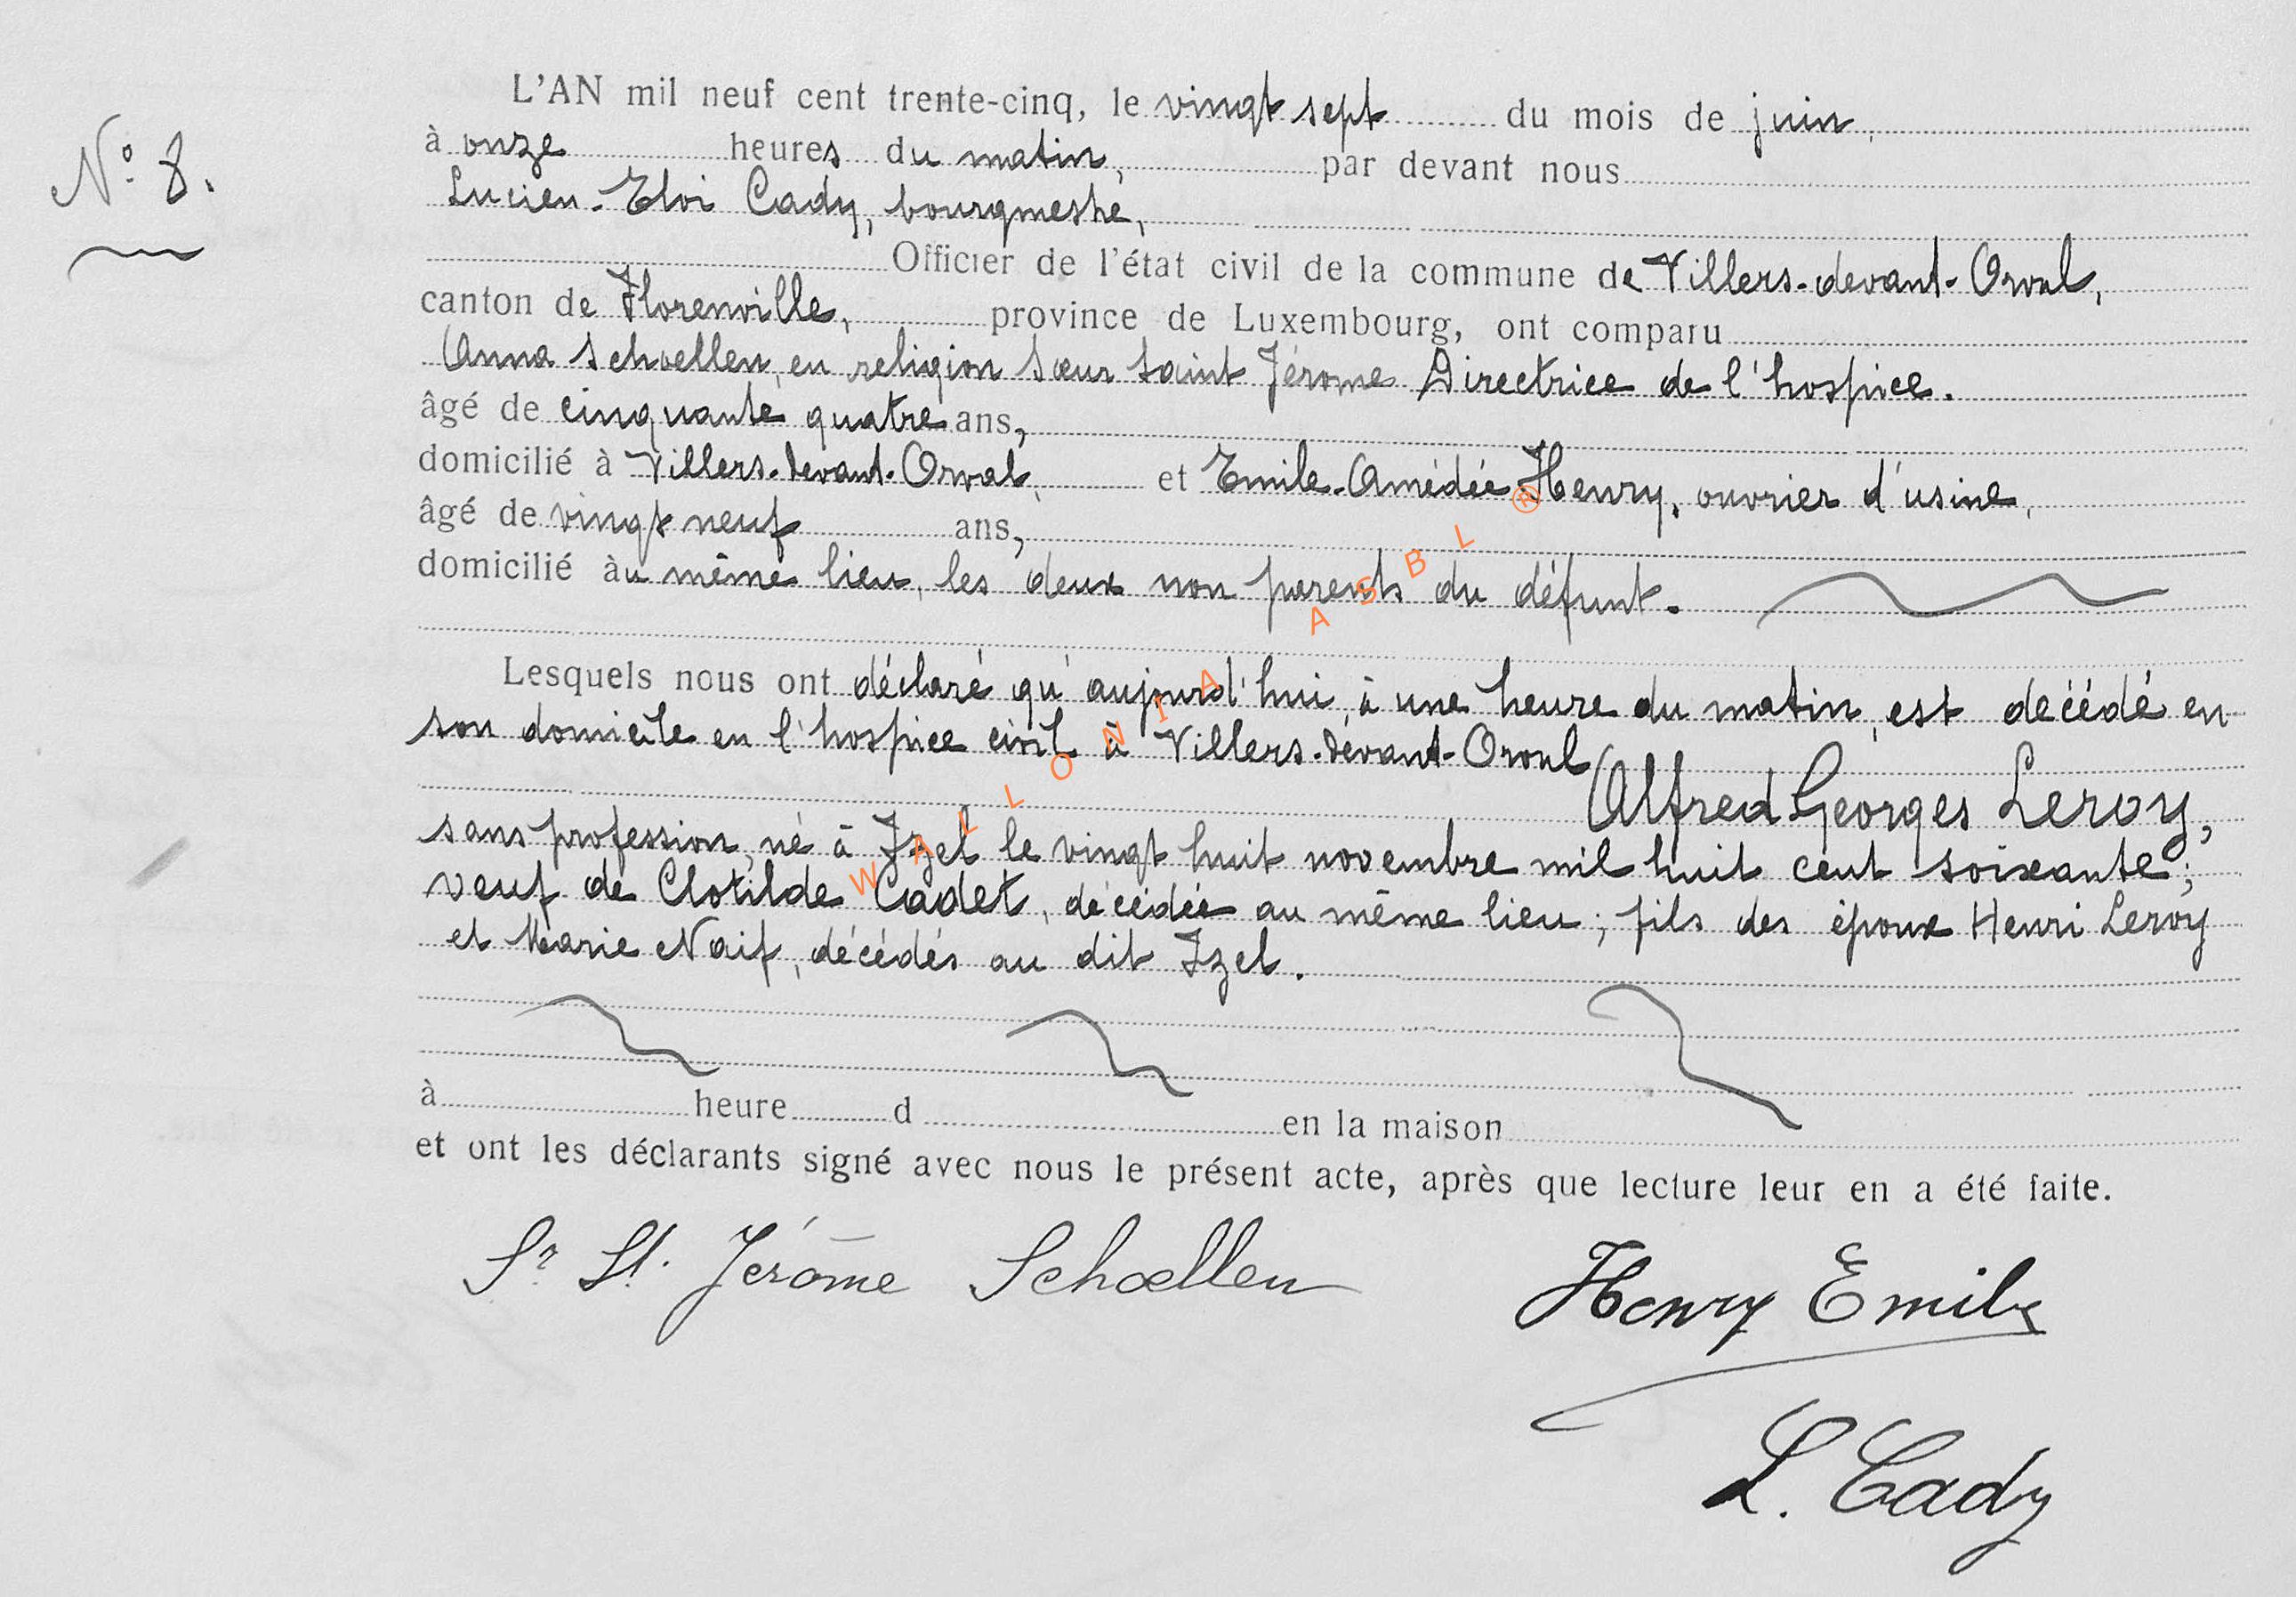 L'AN mil neuf cent trente-cinq, le vingt sept du mois de juin,
N° 8.
à onze heures du matin, par devant nous
Lucien-Eloi Cady, bourgmestre,
Officier de l'état civil de la commune de Villers-devant-Orval,
canton de Florenville, province de Luxembourg, ont comparu
Anna Schoellen, en religion sœur saint Jérome Directrice de l'hospice.
âgé de cinquante quatre ans,
domicilié à Villers-devant-Orval, et Emile-Amédée Henry, ouvrier d'usine,
âgé de vingt neuf ans,
domicilié au même lieu, les deux non parents du défunt.
Lesquels nous ont déclaré qu'aujourd'hui, à une heure du matin, est décédé en
son domicile en l'hospice civil à Villers-devant-Orval
Alfred Georges Leroy,
sans profession, né à Izel le vingt huit novembre mil huit cent soixante;
veuf de Clotilde Cadet, décédée au même lieu; fils des époux Henri Leroy
et Marie Naif, décédés au dit Izel.
à heure d en la maison
et ont les déclarants signé avec nous le présent acte, après que lecture leur en a été faite.
Sr St. Jérôme Schoellen
Henry Emile
L. Cady
WALLONIA ASBL ®